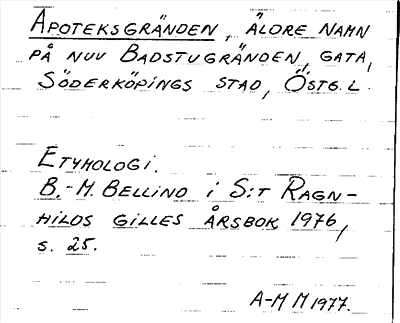 APOTEKSGRÄNDEN, ÄLDRE NAMN
PÅ NUV BADSTUGRÄNDEN, GATA,
SÖDERKÖPINGS STAD, ÖSTG. L.
ETYMOLOGI.
B.-M. BELLIND i S:T RAGN-
HILDS GILLES ÅRSBOK 1976,
S. 25.
A-M M 1977.